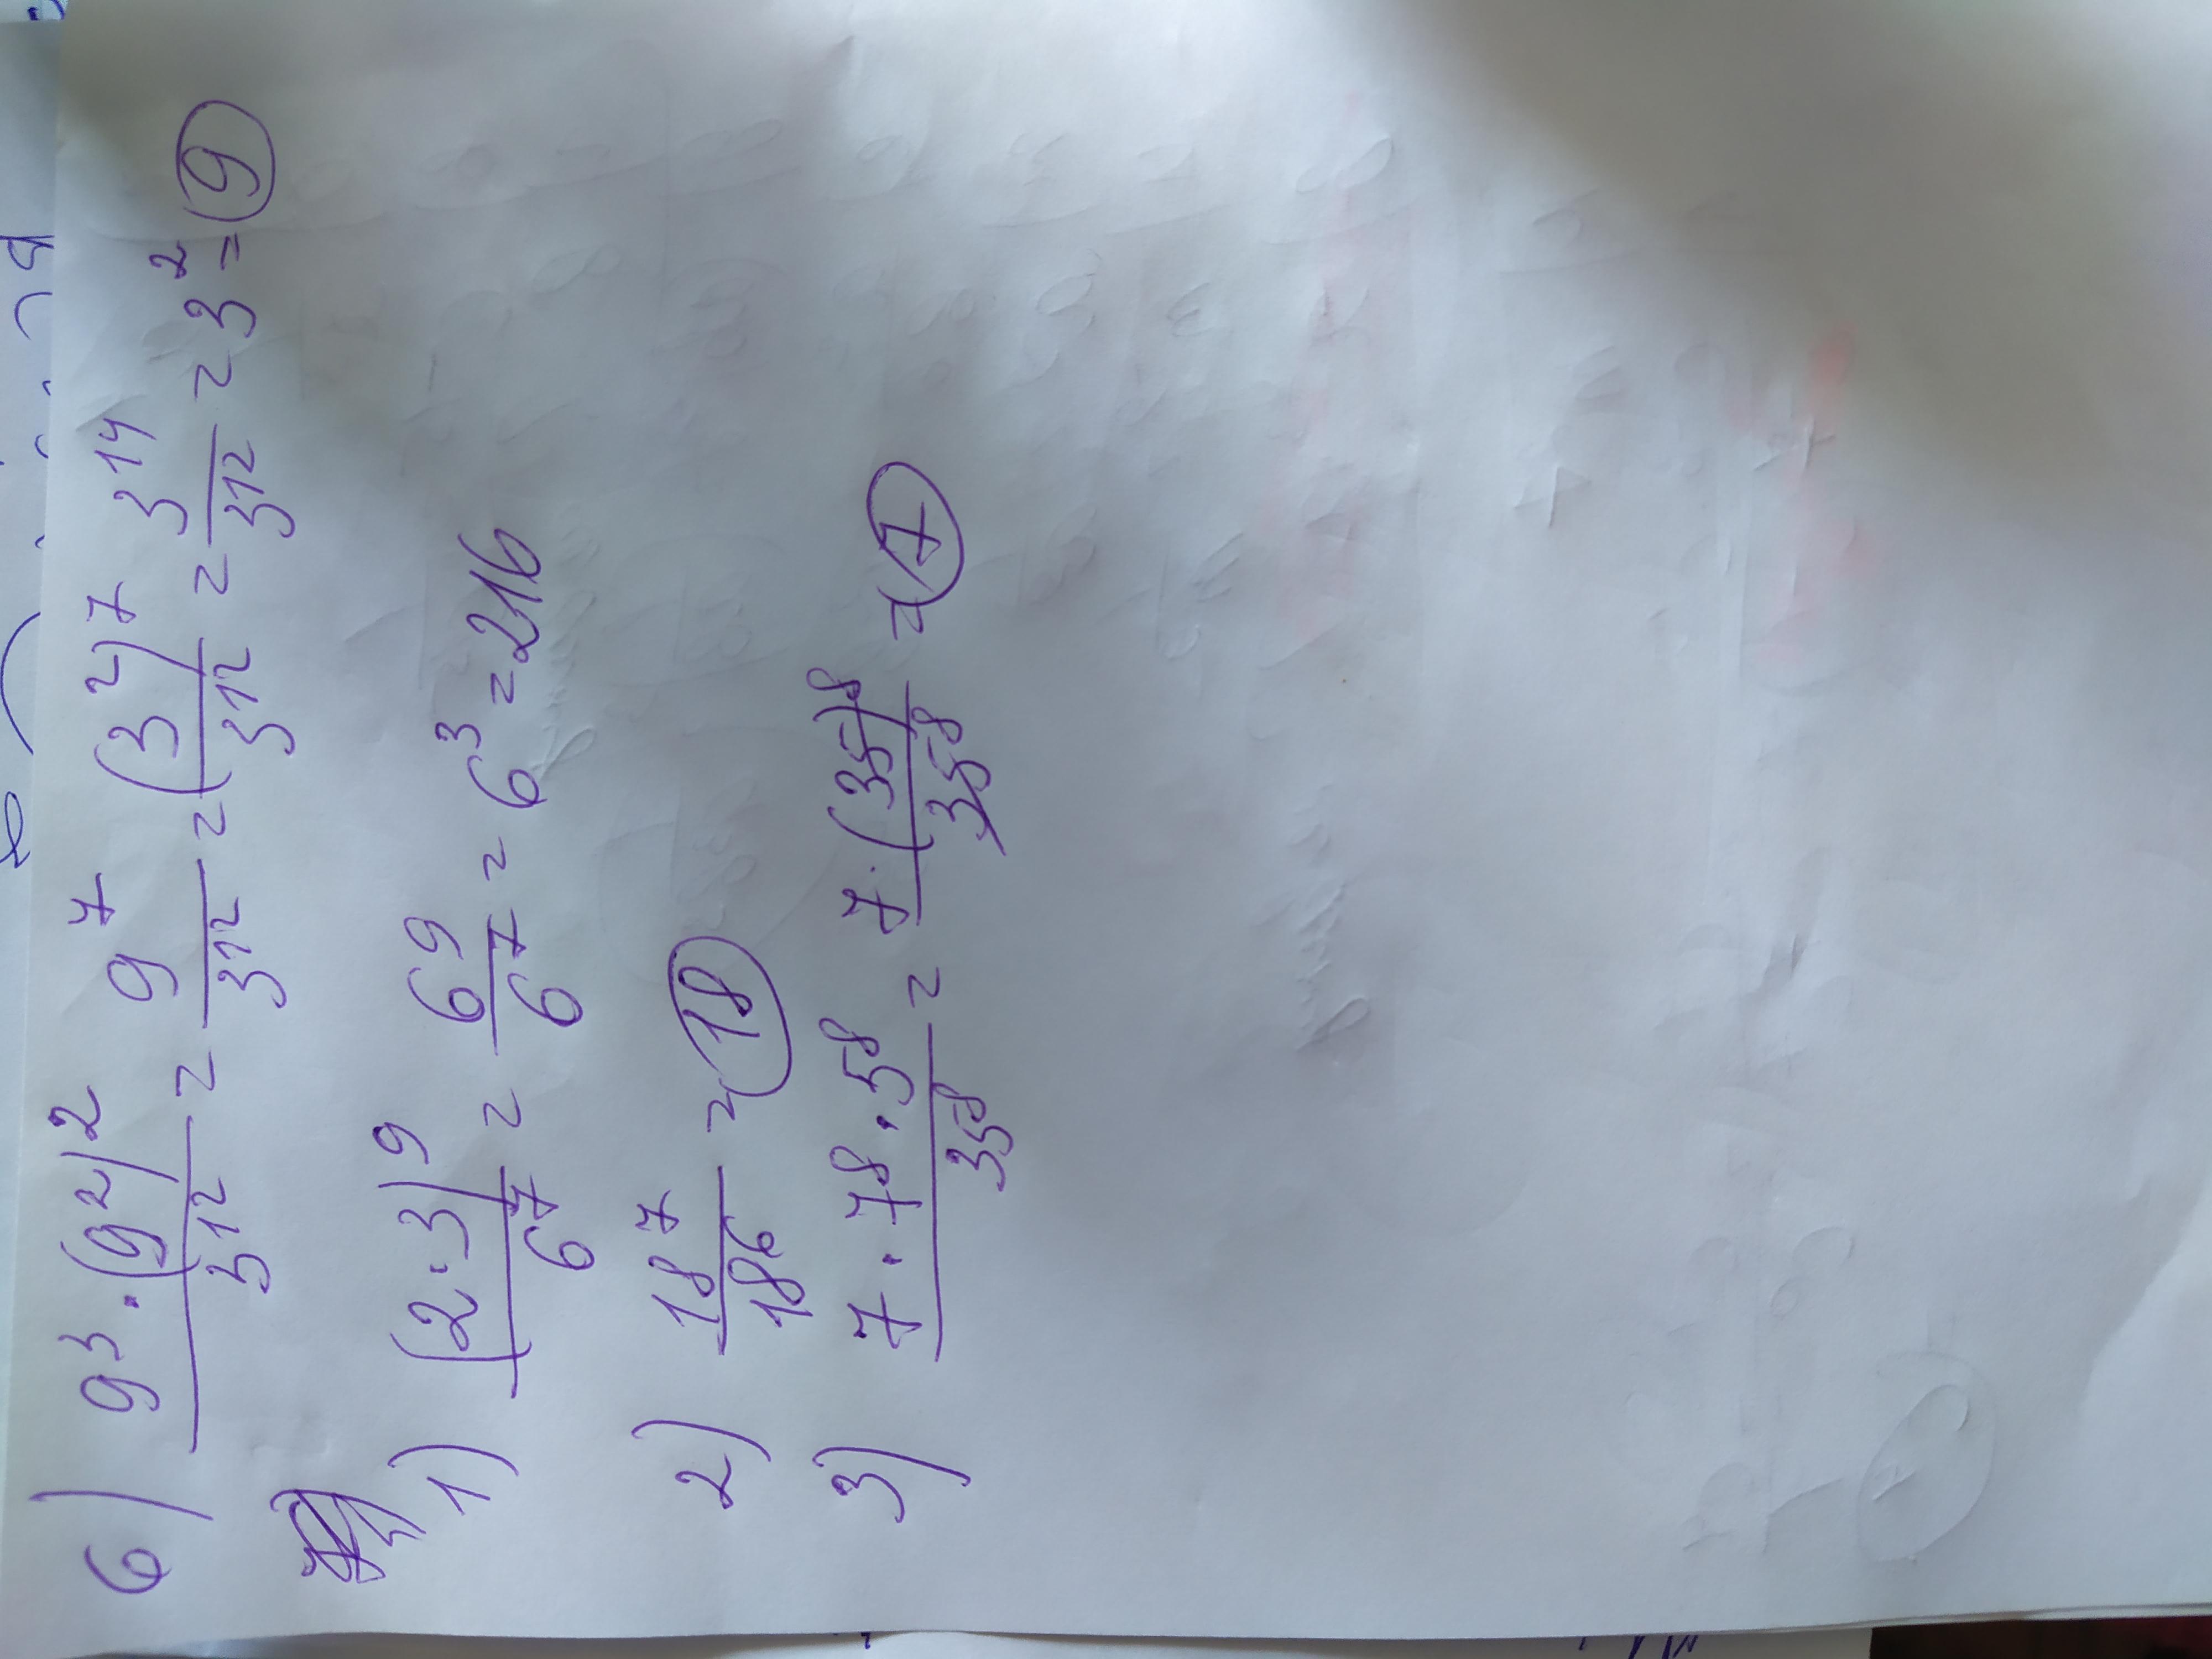 6) 9³ · (9²)² / 3¹² = 9⁷ / 3¹² = (3²)⁷ / 3¹² = 3¹⁴ / 3¹² = 3² = 9
1) (2·3)⁹ / 6⁷ = 6⁹ / 6⁷ = 6³ = 216
2) 18⁷ / 18⁶ = 18
3) 7 · 7⁸ · 5⁸ / 35⁸ = 7 · (35)⁸ / 35⁸ = 7